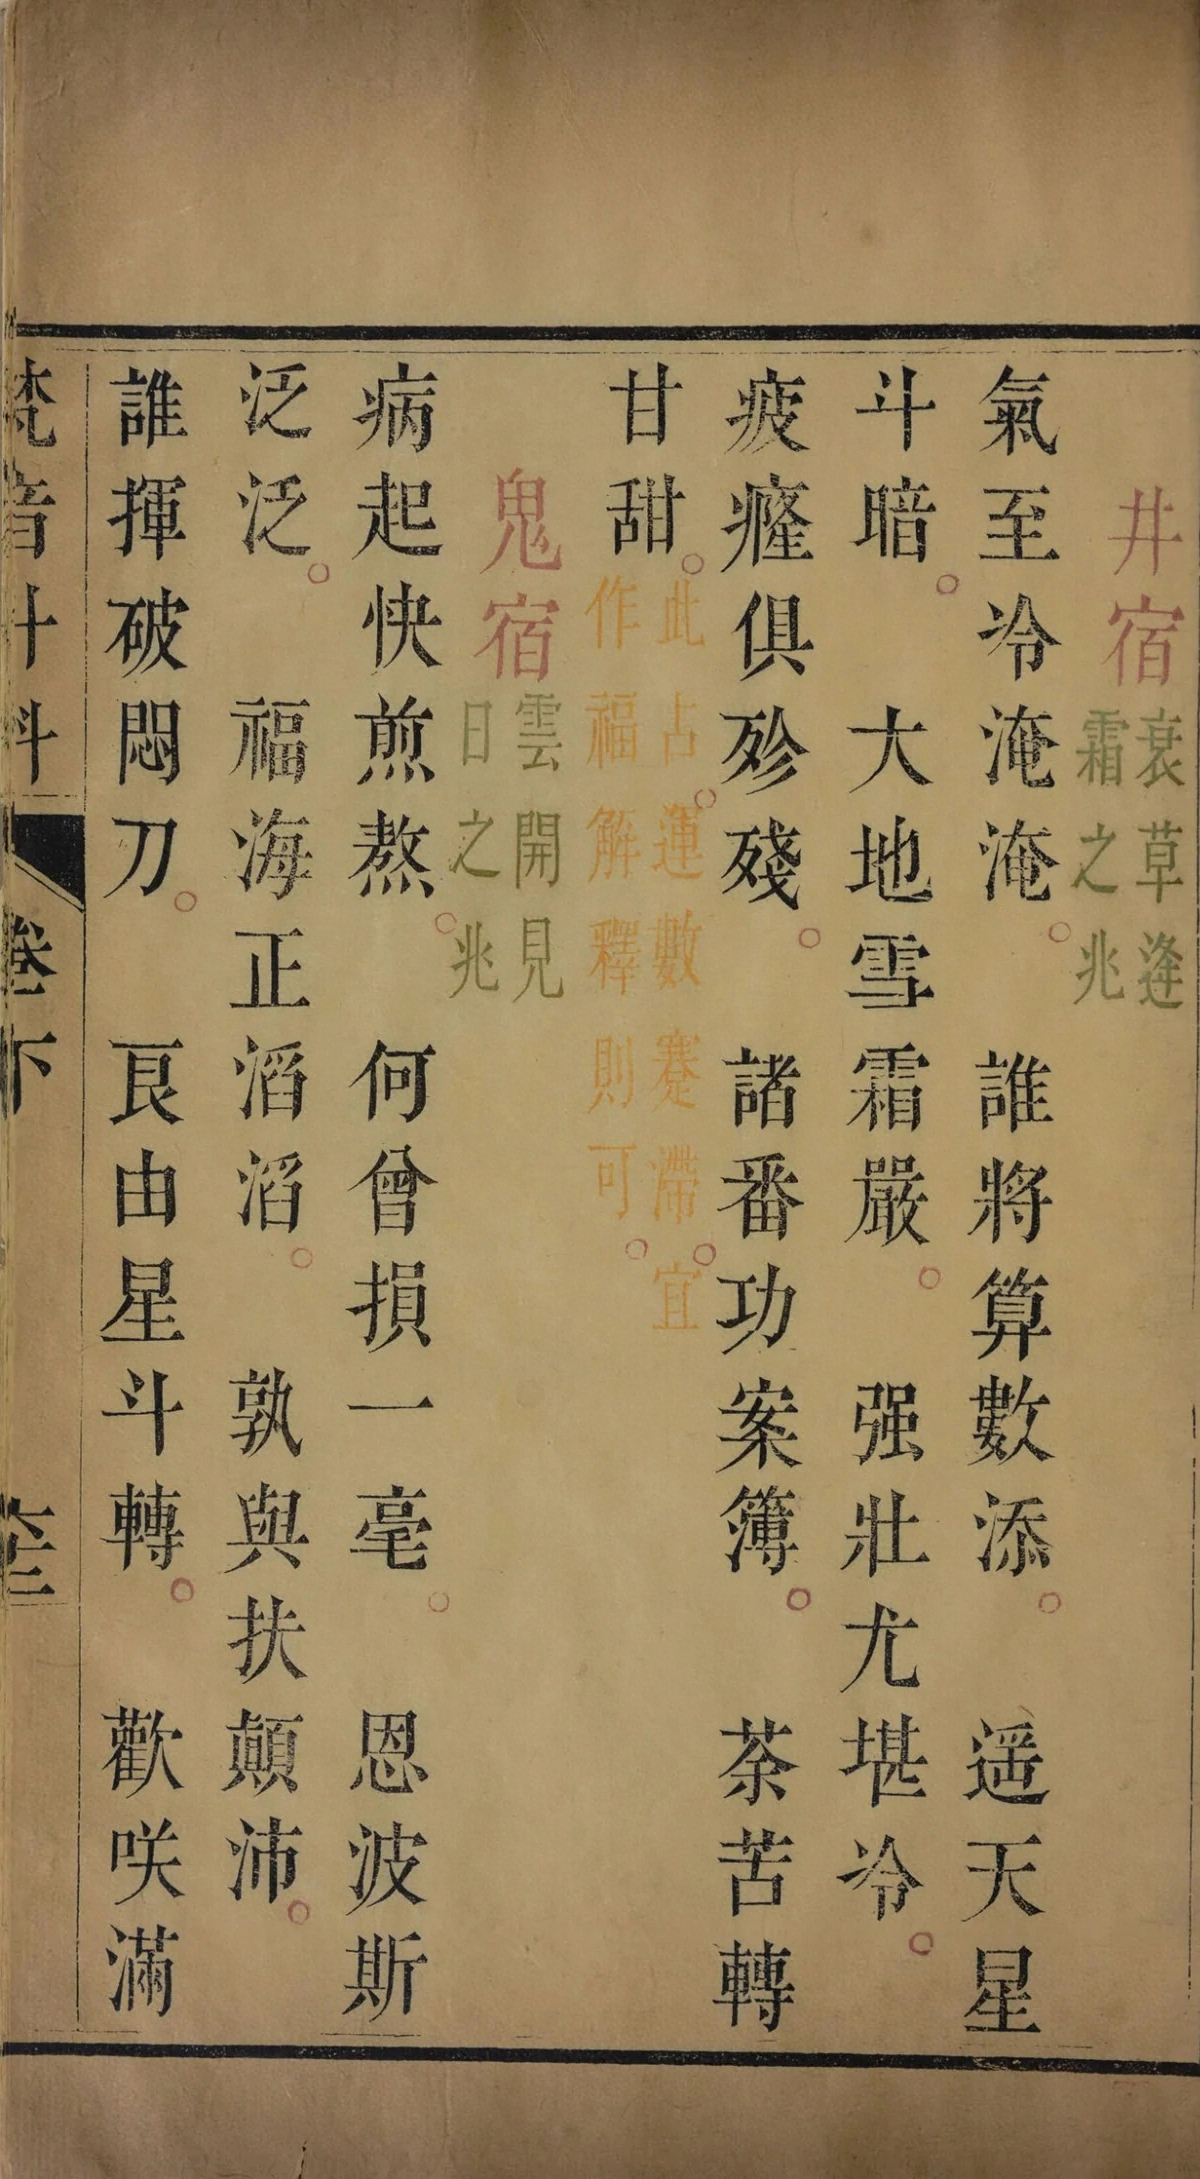 井宿 衰草逢霜之兆
氣至冷淹淹。誰將算數添。遥天星
斗暗。大地雪霜嚴。强壯尤堪冷。
疲癃俱殄殘。諸番功案簿。荼苦轉
甘甜。此占運數蹇滯。宜作福解釋則可。
鬼宿 雲開見日之兆
病起快煎熬。何曾損一毫。恩波斯
泛泛。福海正滔滔。孰與扶顛沛。
誰揮破悶刀。艮由星斗轉。歡咲滿
梵音斗科 卷下 六三